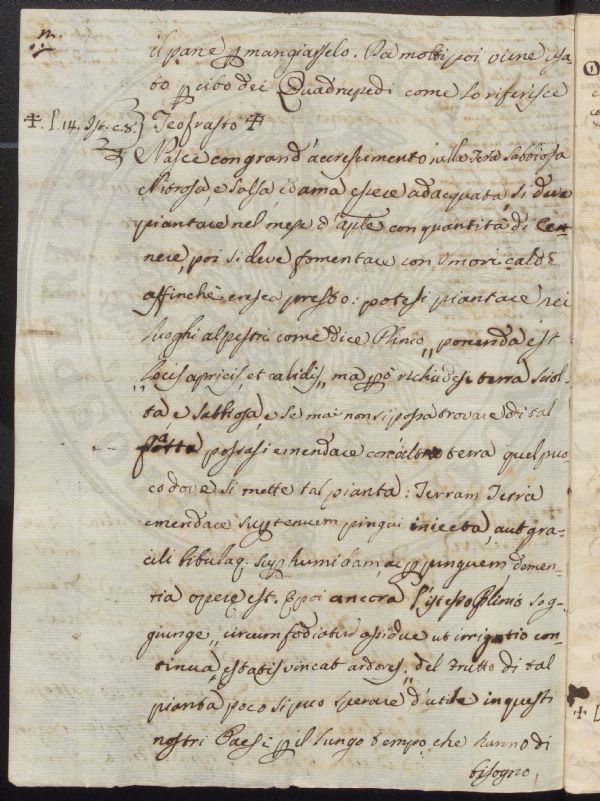 il pane p mangiasselo. Da molti poi viene usa
to p cibo dei Quadrupedi come lo riferisce
✠. l. 14. Ist. c. 8.} Teofrasto ✠
Nasce con grand' accrescimento nella Tera Sabbiosa
Nitrosa, e salsa, ed ama essere adacquata, si deve
piantare nel mese d'aple con quantità di Cen-
nere, poi si deve fomentare con Umori caldi
affinché cresca presto: potesi piantare nei
luoghi alpestri come dice Plinio „ ponenda est
„ Locis apricis, et calidis „ ma però richiedesi terra sciol-
ta, e sabbiosa, e se mai non si possa trovare di tal
fatta possasi emendare con altra terra quel puo
co dove si mette tal pianta: Terram Terra
emendare sup tenuem pingui iniecta, aut gra-
cili bibulaq. sup humidam, ac p pinguem demen-
tia opere est. E poi ancora l'istesso Plinio sog-
giunge „ circumfodiatur assidue ut irrigatio con-
tinua, estatis vincat ardores „ del frutto di tal
pianta poco si puo sperare d'utile in questi
nostri Paesi p il lungo tempo, che hanno di
bisogno,